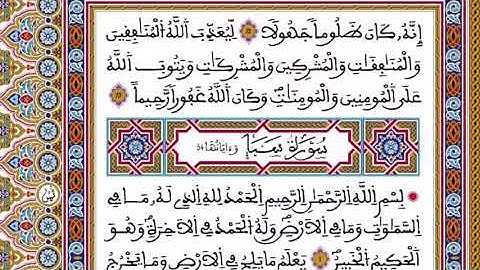 إِنَّهُۥ كَانَ ظَلُوماٗ جَهُولاٗ ۝ لِّيُعَذِّبَ اَ۬للَّهُ اُ۬لْمُنَٰفِقِينَ
وَالْمُنَٰفِقَٰتِ وَالْمُشْرِكِينَ وَالْمُشْرِكَٰتِ وَيَتُوبَ اَ۬للَّهُ
عَلَي اَ۬لْمُومِنِينَ وَالْمُومِنَٰتِۖ وَكَانَ اَ۬للَّهُ غَفُوراٗ رَّحِيماًۖ ۝
سُورَةُ سَبَإٖ وَءَايَاتُهَا ٥٤
بِسْمِ اِ۬للَّهِ اِ۬لرَّحْمَٰنِ اِ۬لرَّحِيمِ اِ۬لْحَمْدُ لِلهِ اِ۬لذِے لَهُۥ مَا فِے
اِ۬لسَّمَٰوَٰتِ وَمَا فِے اِ۬لَارْضِ وَلَهُ اُ۬لْحَمْدُ فِے اِ۬لَاخِرَةِۖ وَهُوَ
اَ۬لْحَكِيمُ اُ۬لْخَبِيرُۖ ۝ يَعْلَمُ مَا يَلِجُ فِے اِ۬لَارْضِ وَمَا يَخْرُجُ